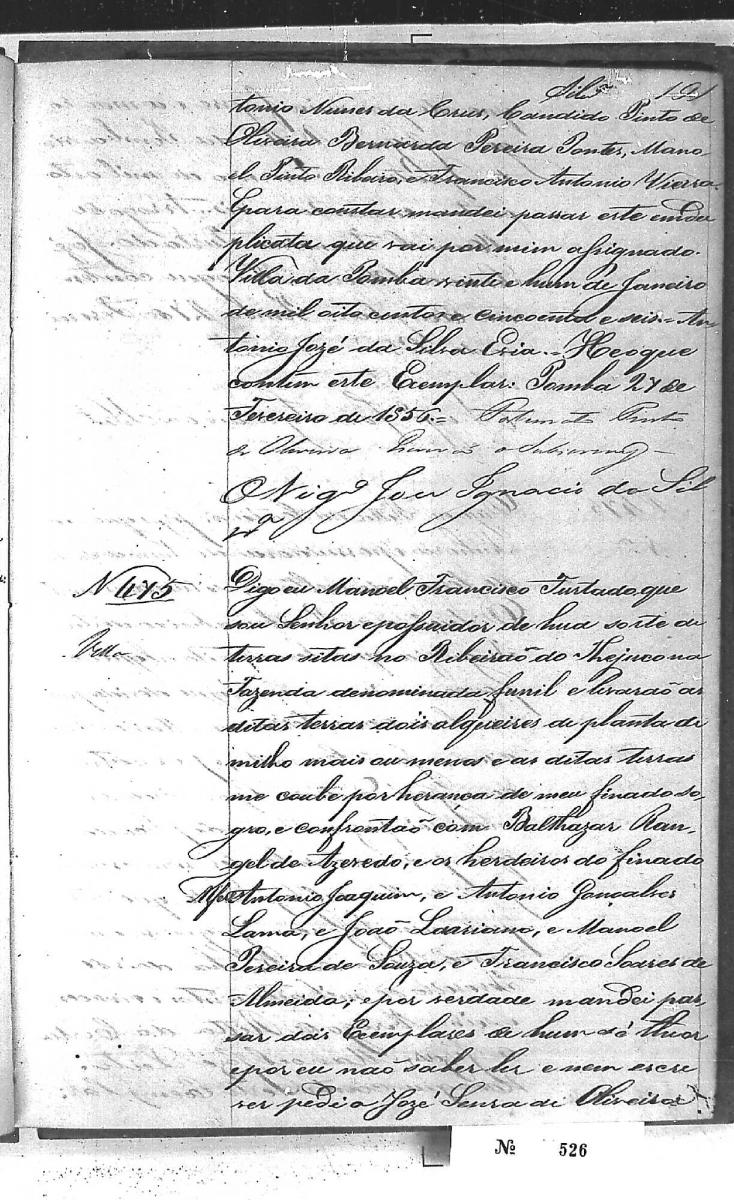 Silvª 191
tonio Nunes da Crus, Candido Pinto de
Oliveira Bernarda Pereira Pontes, Mano
el Pinto Ribeiro, e Francisco Antonio Vieira.
Epara constar mandei passar este emdu
plicata que vai por mim asignado.
Villa da Pomba vinte e hum de Janeiro
de mil oito centos e cincoenta e seis = An
tonio Jozé da Silva Eria .. = Heoque
contem este Exemplar: Pomba 27 de
Fevereiro de 1856 = Fortunato Pinto
de Oliveira
O Vigº Jose Ignacio da Sil
vª
N 475
Digo eu Manoel Francisco Furtado, que
sou Senhor e possuidor de hua sorte de
Villa
terras sitas no Ribeiraõ do Thejuco na
Fazenda denominada funil e levaraõ as
ditas terras dois alqueires de planta de
milho mais ou menos e as ditas terras
me coube por herança de meu finado so
gro, e confrontaõ com Balthazar Ran,
gel de Azeredo, e os herdeiros do finado
Antonio Joaquim, e Antonio Gonçalves
Lama, e Joaõ Lauriano, e Manoel
Pereira de Souza, e Francisco Soares de
Almeida; e por verdade mandei pas
sar dois Exemplares de hum só theor
e por eu naõ saber ler e nem escre
ver pedi a Jozé Senra de Oliveira
Nº 526